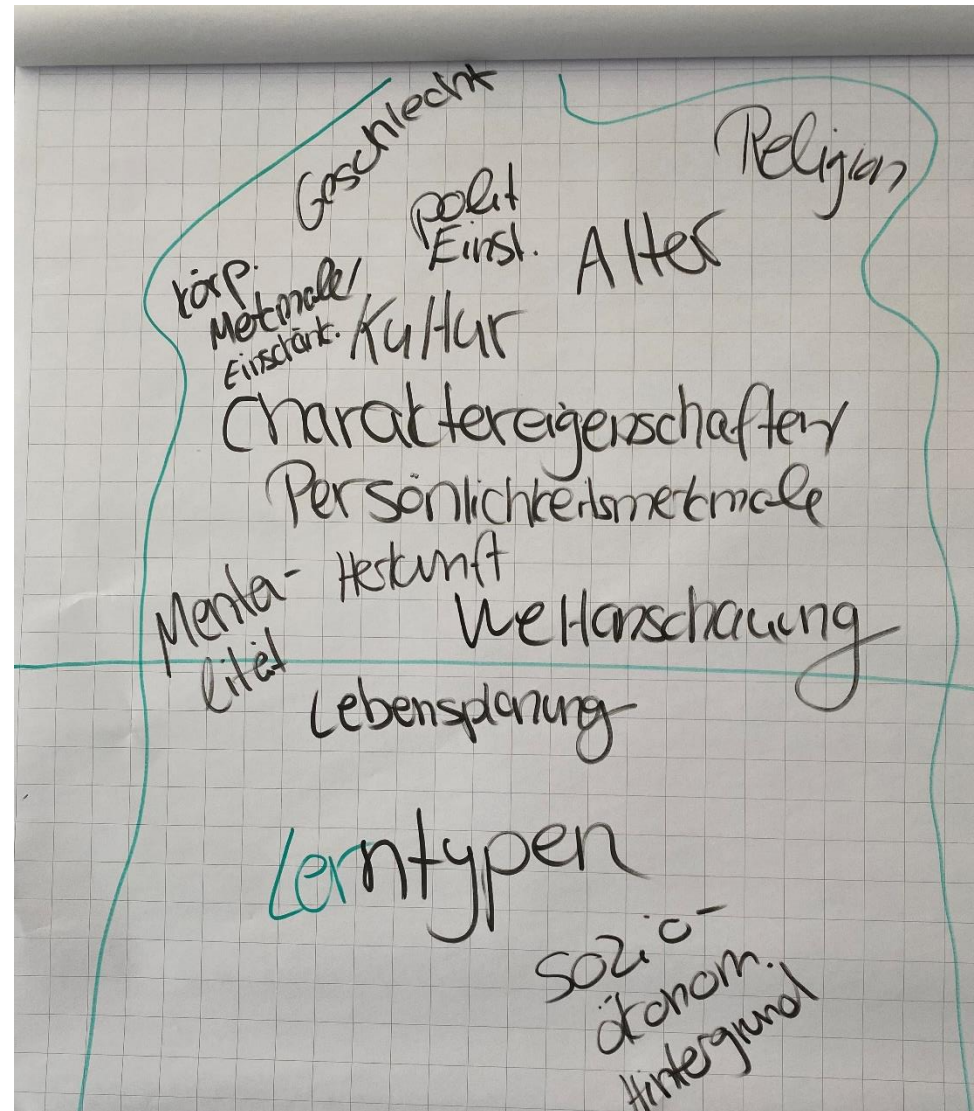 Geschlecht
Religion
polit
Einst.
Alter
körp.
Merkmale/
Einschränk.
Kultur
Charaktereigenschaften/
Persönlichkeitsmerkmale
Menta-
lität
Herkunft
Weltanschauung
Lebensplanung
Lerntypen
sozio-
ökonom.
Hintergrund